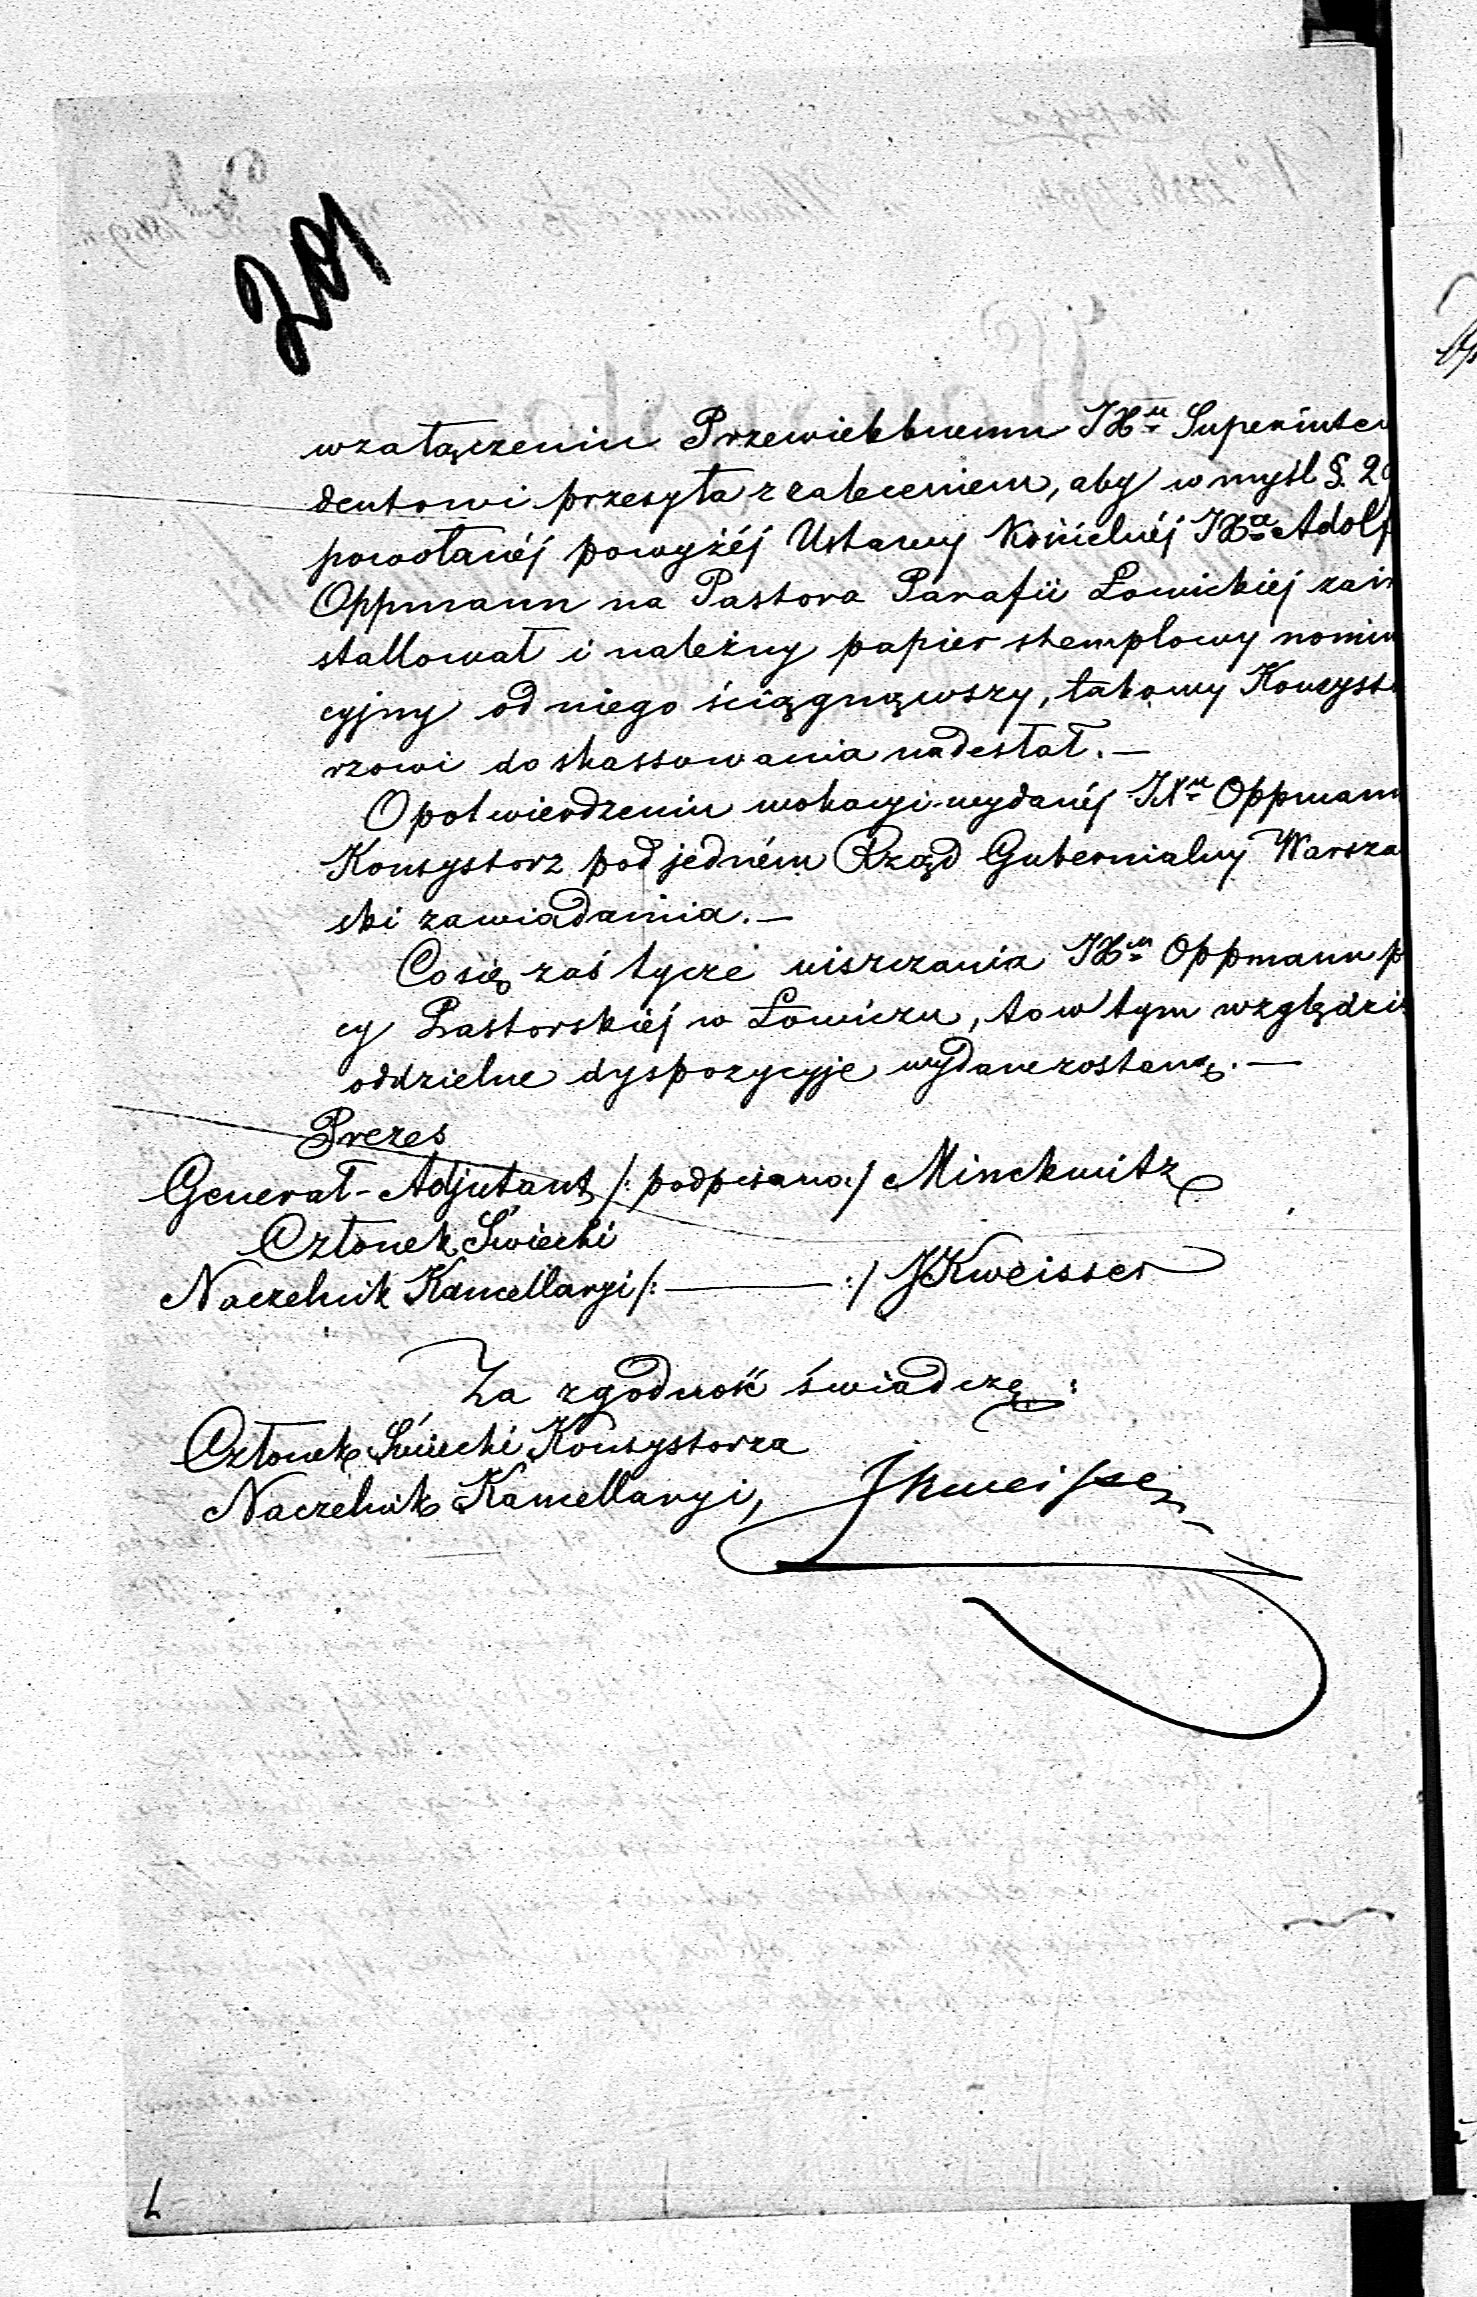 201
w załączeniu Przewielebnemu JXu Superinten
dentowi przesyła z zaleceniem, aby w myśl §. 2
powołanéj powyżéj Ustawy Kościelnéj JXa Adolf
Oppmann na Pastora Parafii Łowickiej zain
stallował i należny papier stemplowy nomin
cyjny od niego ściągnąwszy, takowy Konsysto
rzowi do skassowania nadesłał. —
O potwierdzeniu wokacyi wydanéj JXu Oppmann
Konsystorz pod jedném Rząd Gubernialny Warsza
ski zawiadamia. —
Co się zaś tycze uiszczania JXu Oppmann p
cy Pastorskiéj w Łowiczu, to w tym względzie
oddzielne dyspozycyje wydane zostaną. —
Prezes
Generał-Adjutant /: podpisano :/ Minckwitz
Członek Świecki
Naczelnik Kancellaryi /: ——— :/ J Kweisser
Za zgodność świadczę:
Członek Świecki Konsystorza
Naczelnik Kancellaryi, JKweisser